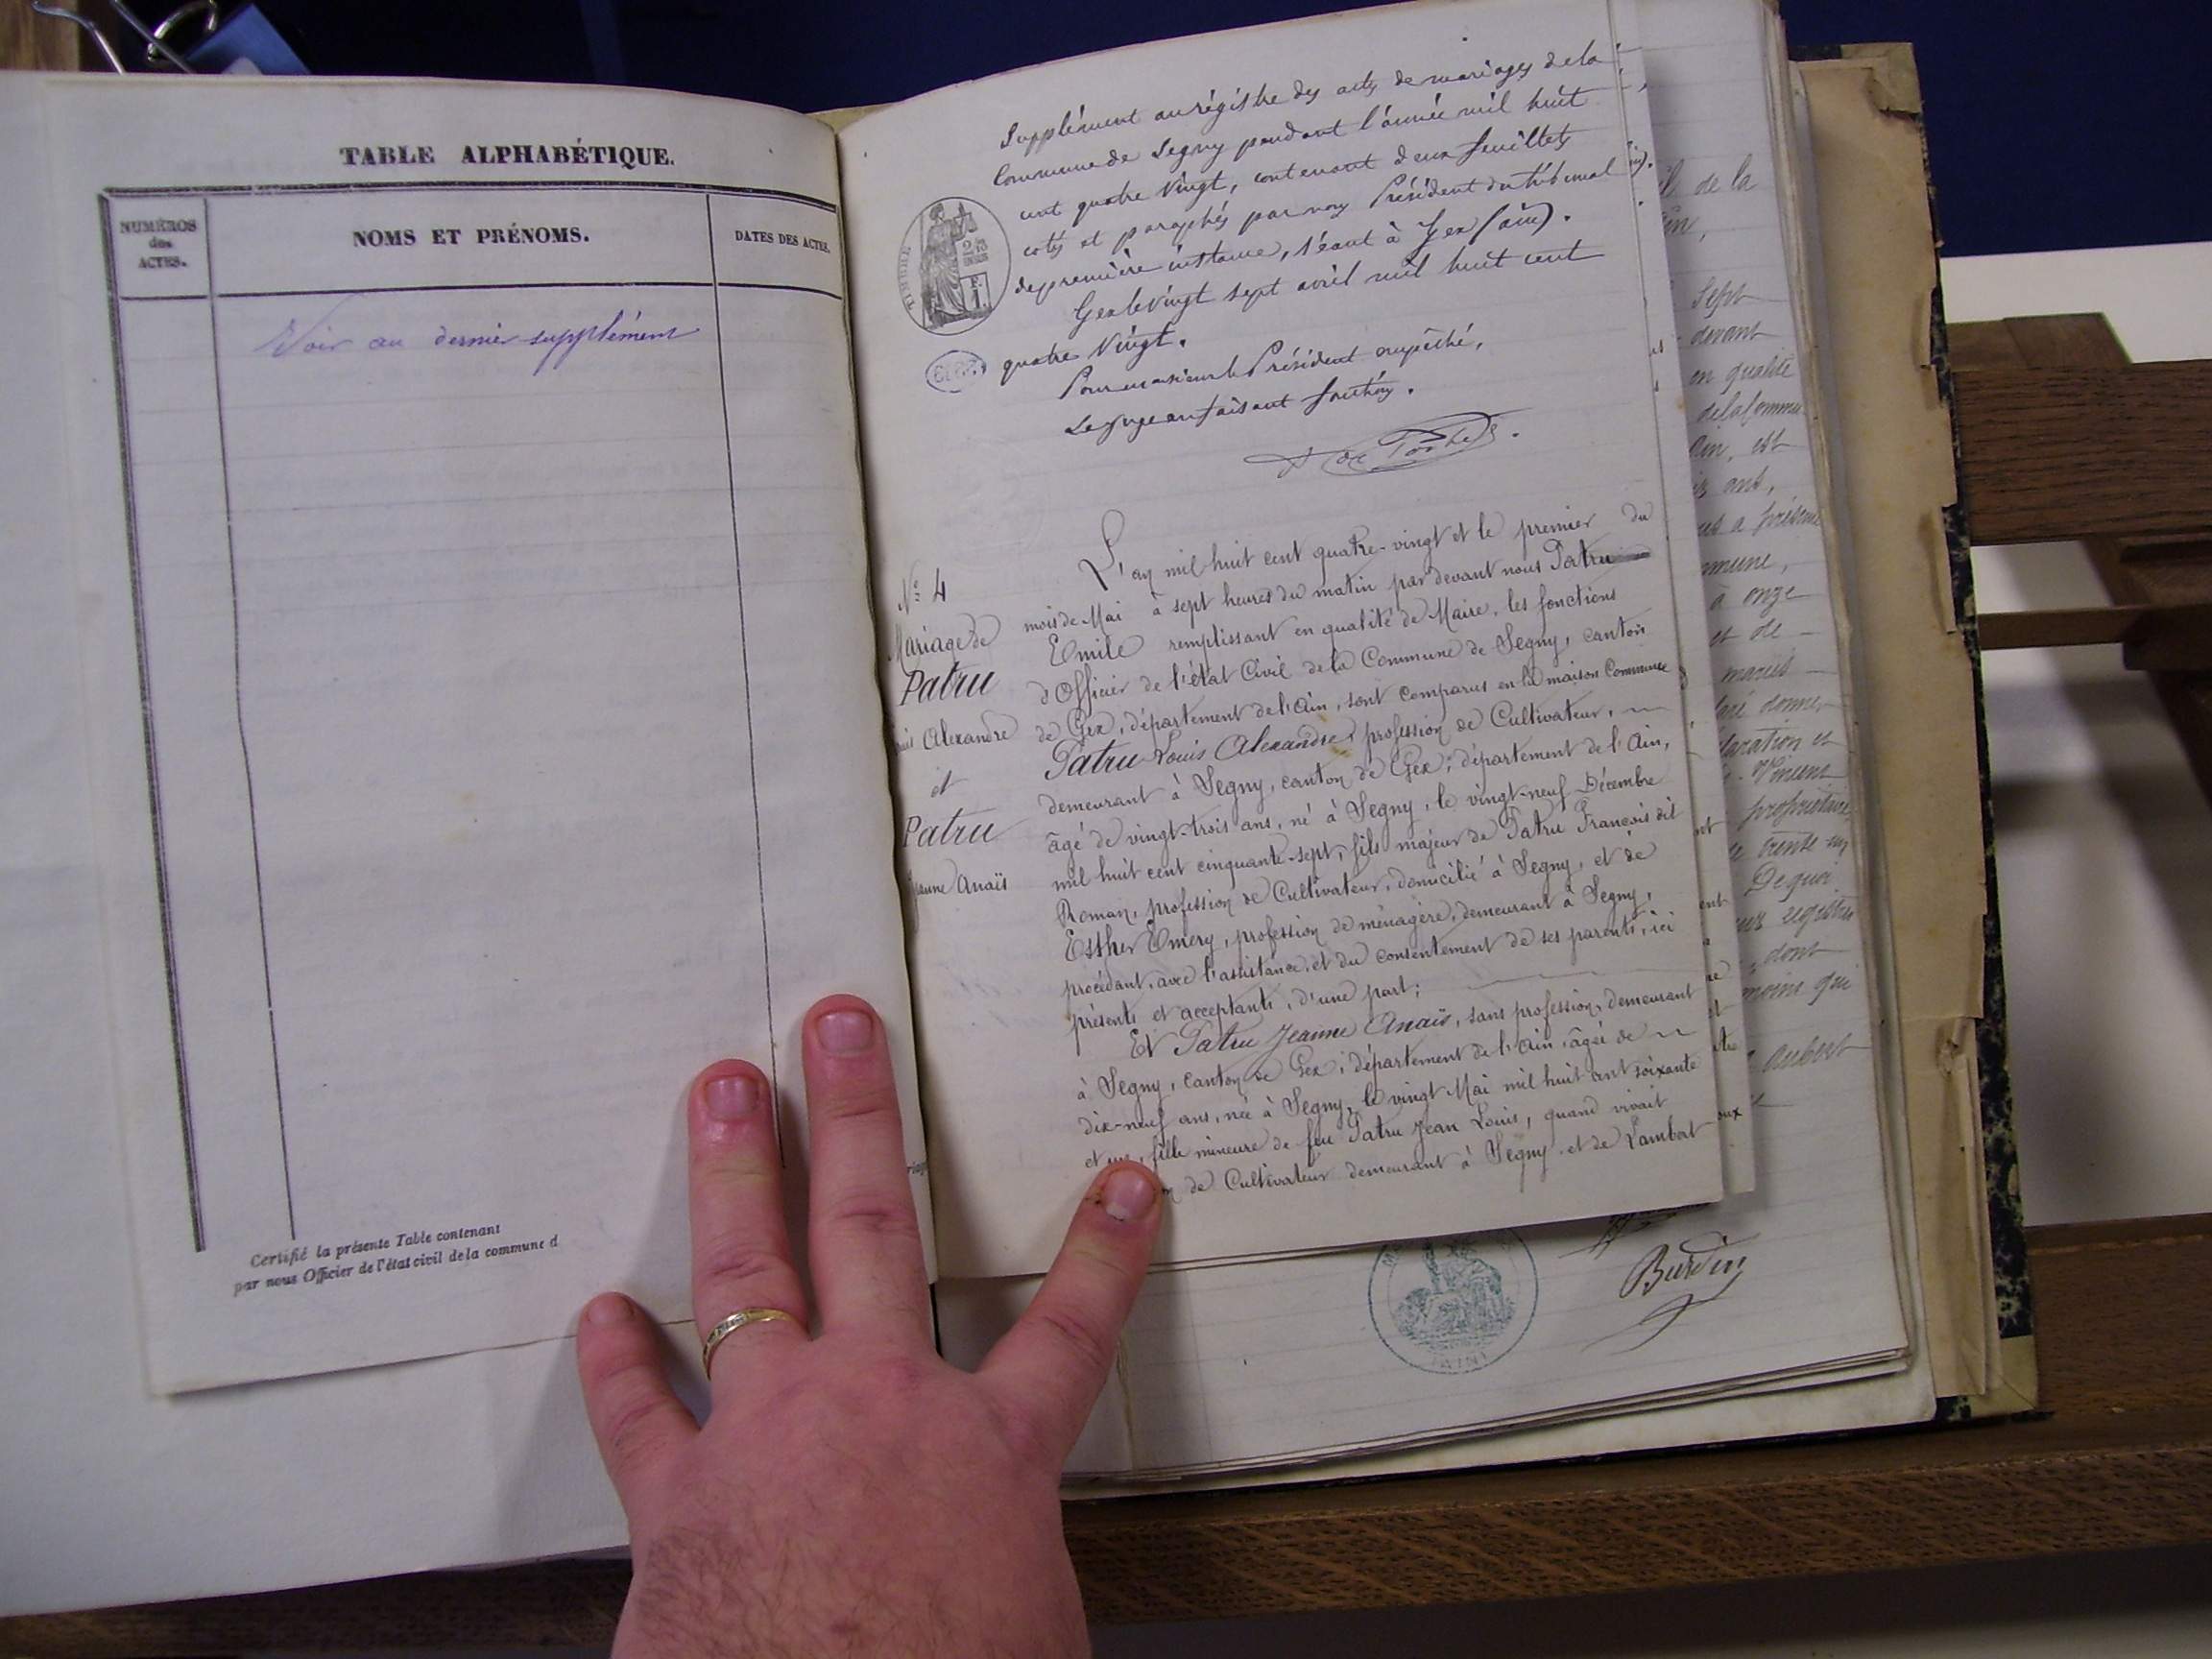 TABLE ALPHABÉTIQUE.
NUMÉROS
des
ACTES.
NOMS ET PRÉNOMS.
DATES DES ACTES.
Voir au dernier supplément
Certifié la présente Table contenant
par nous Officier de l'état civil de la commune d
Supplément au régistre des actes de mariages de la
Commune de Segny pendant l'année mil huit
cent quatre vingt, contenant deux feuillets
cotés et paraphés par nous Président du tribunal
de première instance, séant à Gex (ain).
Gex le vingt sept avril mil huit cent
quatre Vingt.
Pour monsieur le Président empêché,
Le juge en faisant fonction.
TIMBRE
N° 4
Mariage de
Patru
Alexandre
et
Patru
Jeanne Anaïs
L'an mil huit cent quatre-vingt et le premier du
mois de Mai à sept heures du matin par devant nous Patru
Emile remplissant en qualité de Maire, les fonctions
d'Officier de l'état Civil de la Commune de Segny, canton
de Gex, département de l'Ain, sont comparus en la maison Commune
Patru Louis Alexandre, profession de Cultivateur,
demeurant à Segny, canton de Gex, département de l'Ain,
âgé de vingt-trois ans, né à Segny, le vingt-neuf Décembre
mil huit cent cinquante-sept, fils majeur de Patru François dit
Roman, profession de Cultivateur, domicilié à Segny, et de
Esther Emery, profession de ménagère, demeurant à Segny,
procédant, avec l'assistance et du consentement de ses parents, ici
présents et acceptants, d'une part;
Et Patru Jeanne Anaïs, sans profession, demeurant
à Segny, canton de Gex, département de l'Ain, âgée de
dix-neuf ans, née à Segny, le vingt Mai mil huit cent soixante
et un, fille mineure de feu Patru Jean Louis, quand vivait
de Cultivateur demeurant à Segny et de Lambert
de la
Sept
devant
en qualité
de la Commune
Ain, est
ans,
a
à onze
et de
mariés
donner
propriétaire
trente un
De quoi
dont
qui
Aubert
Burdin